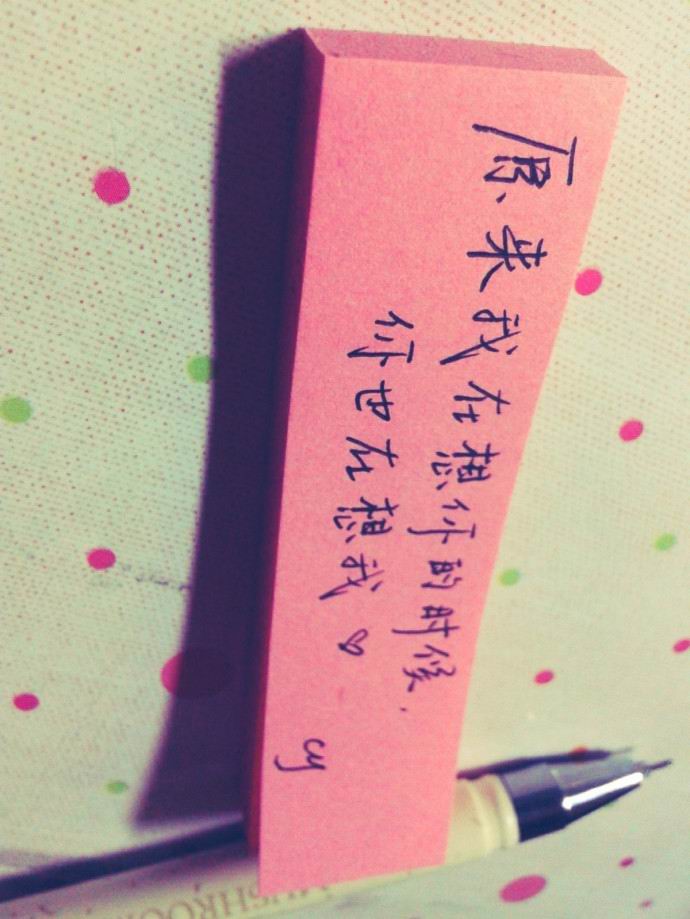 原来我在想你的时候.
你也在想我♡
cy
MUSHROO